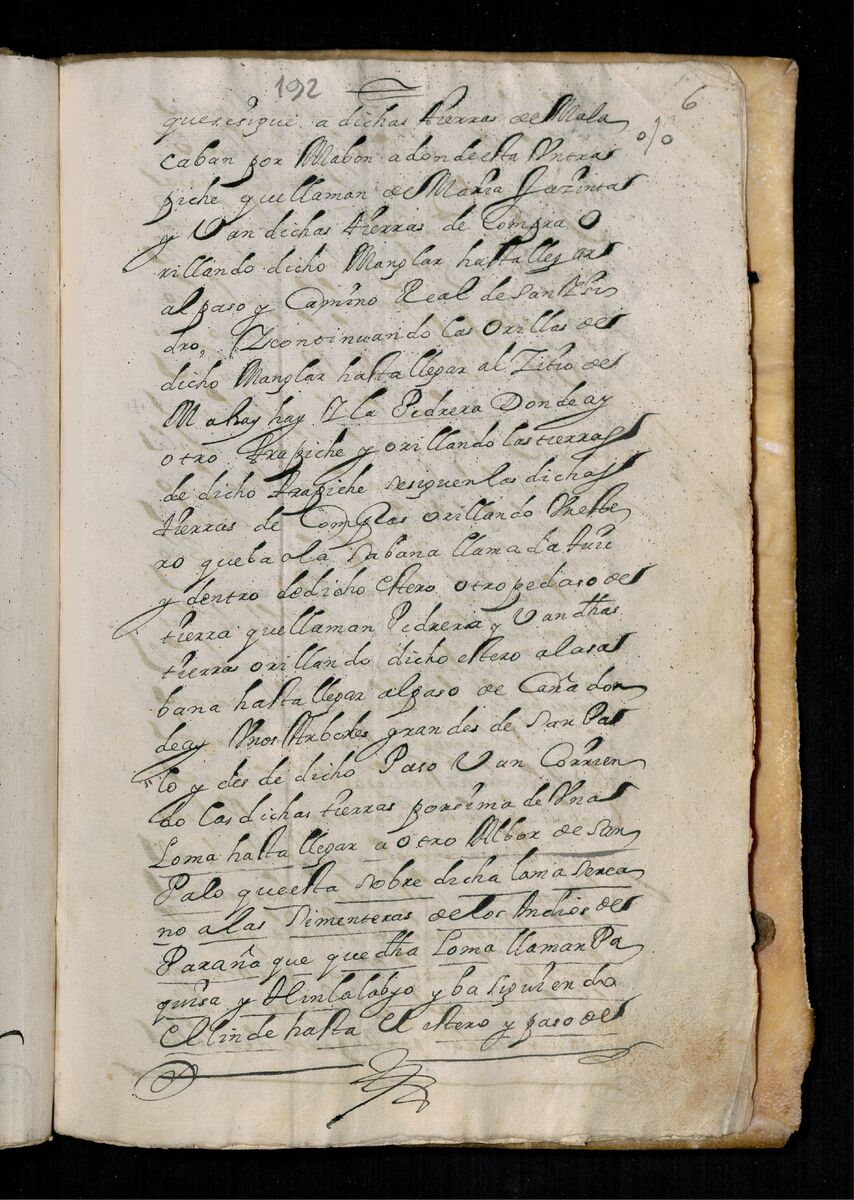 192
6
o/o
que sesigue a dichas tierras de Mala
caban por Mabon adonde esta Vntra
piche que llaman de Maria Jazinta
y Van dichas tierras de Compra O
rillando dicho Manglar hasta llegar
al paso y Camino Real de san Ysi
dro, Y continuando las orillas del
dicho Manglar hasta llegar al Zitio de
Mahay hay Y la Pedrera Donde ay
otro trapiche y orillando las tierras
de dicho trapiche sesiguen las dichas
tierras de orillando Vn este
ro que ba a la sabana llamada
y dentro de dicho estero otro pedaso de
tierra que llaman Pedrera y Van dhas
tierras orillando dicho estero a la sa
bana hasta llegar al paso de Caña don
de ay Vnos Arboles grandes de san Pa
lo y des de dicho Paso Van Corrien
do las dichas tierras por sima de Vna
Loma hasta llegar a otro Albor de san
Palo que esta sobre dicha loma serca
no a las simenteras de los Indios de
Paraña que que dha Loma llaman Pa
quisa y Hinlalabjo y ba siguiendo
El linde hasta El estero y paso de